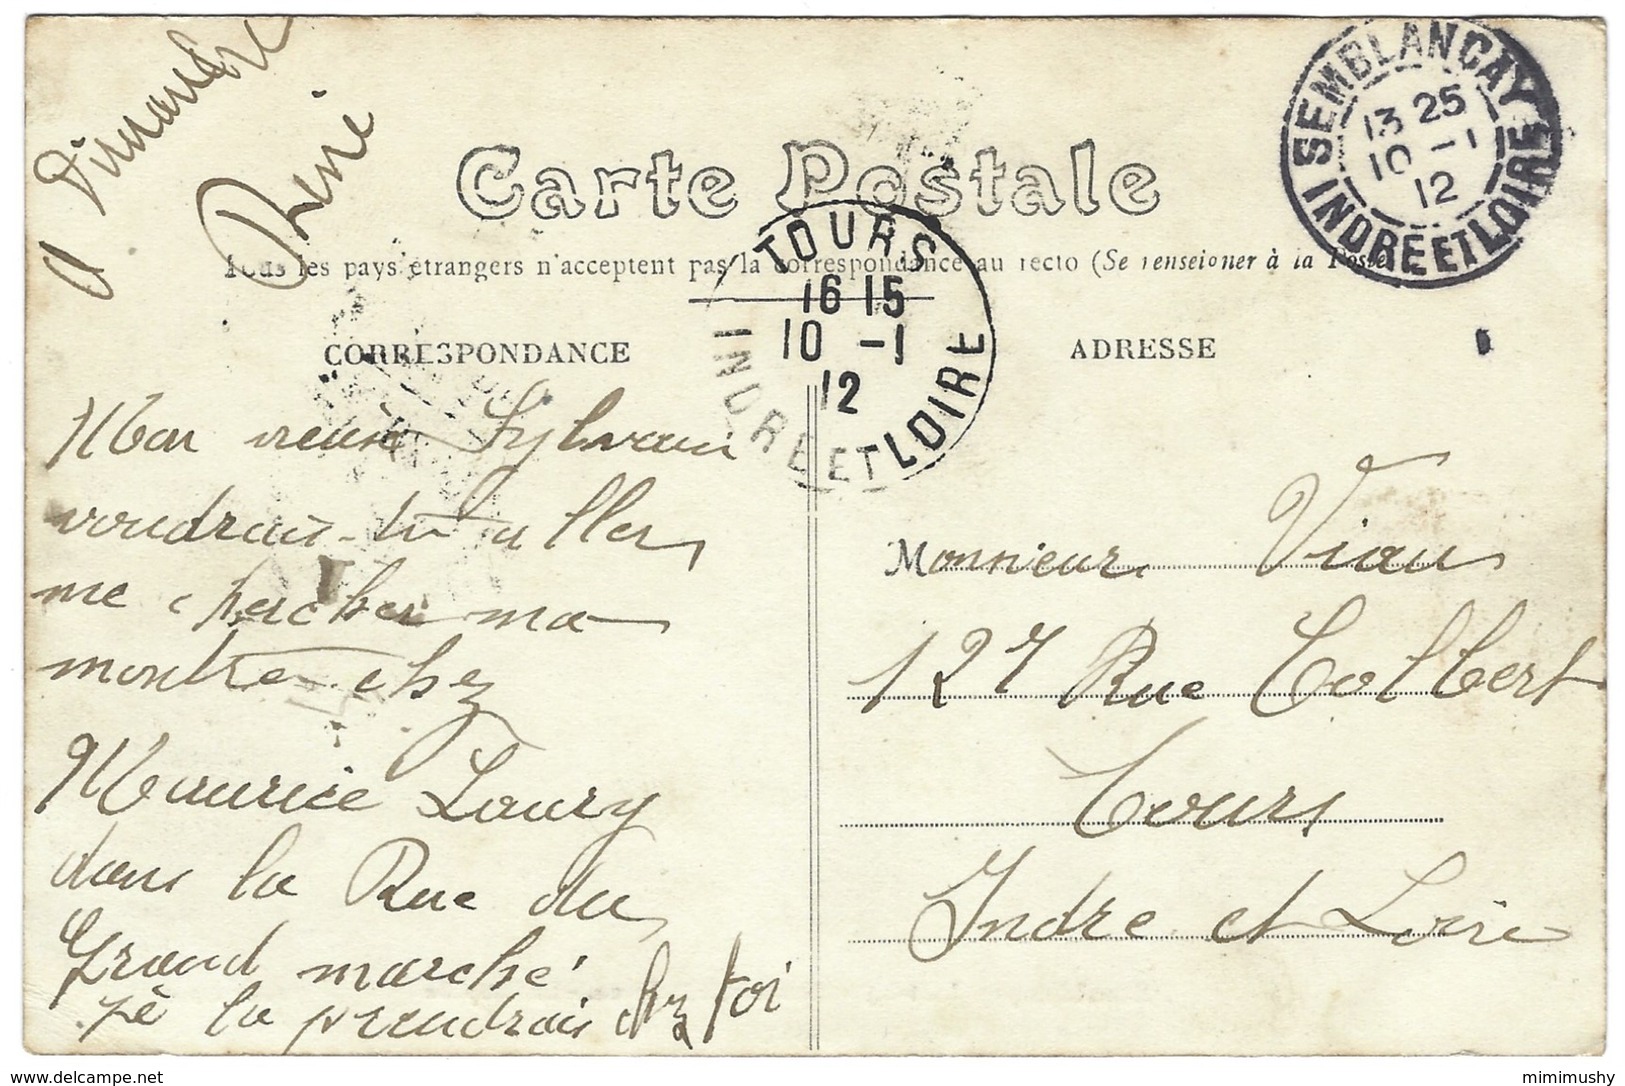 a Dimanche
René
Carte Postale
Tous les pays étrangers n'acceptent pas la correspondance au recto (Se renseigner à la Poste)
SEMBLANÇAY
13 25
10 -1
12
INDRE ET LOIRE
TOURS
16 15
10 -1
12
INDRE ET LOIRE
CORRESPONDANCE
ADRESSE
Mon vieux Sylvain
voudrais-tu aller
me chercher ma
montre chez
Maurice Loury
dans la Rue du
Grand marché
je la prendrais chez toi
Monsieur Viau
127 Rue Colbert
Tours
Indre et Loire
mimimushy